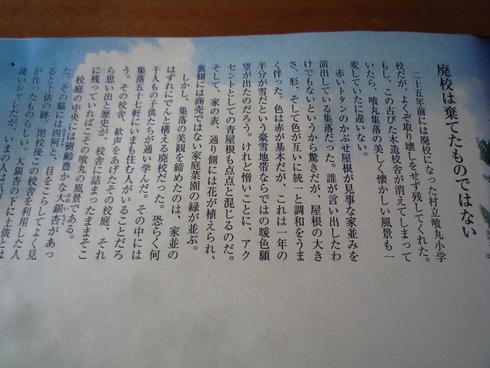 廃校は棄てたものではない
二十五年前には廃校になった村立喰丸小学
校だが、よくぞ取り壊しをせず残してくれた。
もし、この古びた木造校舎が消えてしまって
いたら、喰丸集落の美しく懐かしい風景も一
変していたに違いない。
赤いトタンのかぶせ屋根が見事な家並みを
演出している集落だった。誰が言い出したわ
けでもないというから驚きだが、屋根の大き
さ、形、そして色が互いに統一と調和をうま
く伴った。色は赤が基本だが、これは一年の
半分が雪だという豪雪地帯ならではの暖色願
望が出たのだろう。けれど憎いことに、アク
セントとしての青屋根も点点と混じるのだ。
そして、家の表、通り側には花が植えられ、
裏側には商売ではない家庭菜園の緑が並ぶ。
しかし、集落の美観を締めたのは、家並の
はずれにでんと構える廃校だった。恐らく何
千人もの子供たちが通い学んだ。その中には
集落五十七軒にいまも住む人がいることだろ
う。その校舎、歓声をあげたその校庭、それ
ら思い出と歴史が、校舎に詰まったままそこ
に残っていればこその喰丸の風景である。
校庭の中央には樹齢豊かな大銀杏があっ
た。その脇には四阿と、目をこらしてよく見
ると土俵の跡。閉校後この校舎を利用した人
が作ったものらしい。大銀杏の下に土俵とは
凄いシャレだが、いまの人は気